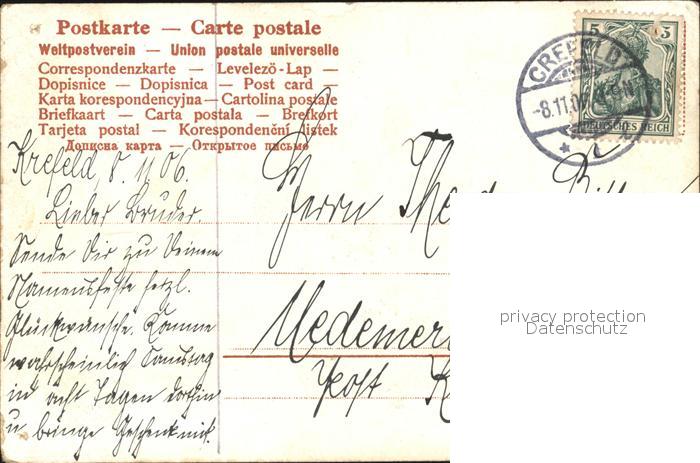 Postkarte — Carte postale
Weltpostverein — Union postale universelle
Correspondenzkarte — Levelező-Lap —
Dopisnice — Dopisnica — Post card —
Karta korespondencyjna — Cartolina postale
Briefkaart — Carta postala — Brefkort
Tarjeta postal — Korespondenční lístek
Дописна карта — Открытое письмо
5 5
DEUTSCHES REICH
CREFELD
-8.11.06
Krefeld, 8. 11 06.
Lieber Bruder.
Sende Dir zu Deinem
Namensfeste herzl.
Glückwünsche. Komme
wahrscheinlich Samstag
in acht Tagen dorthin
u. bringe Geschenk mit.
Herrn
Post
privacy protection
Datenschutz